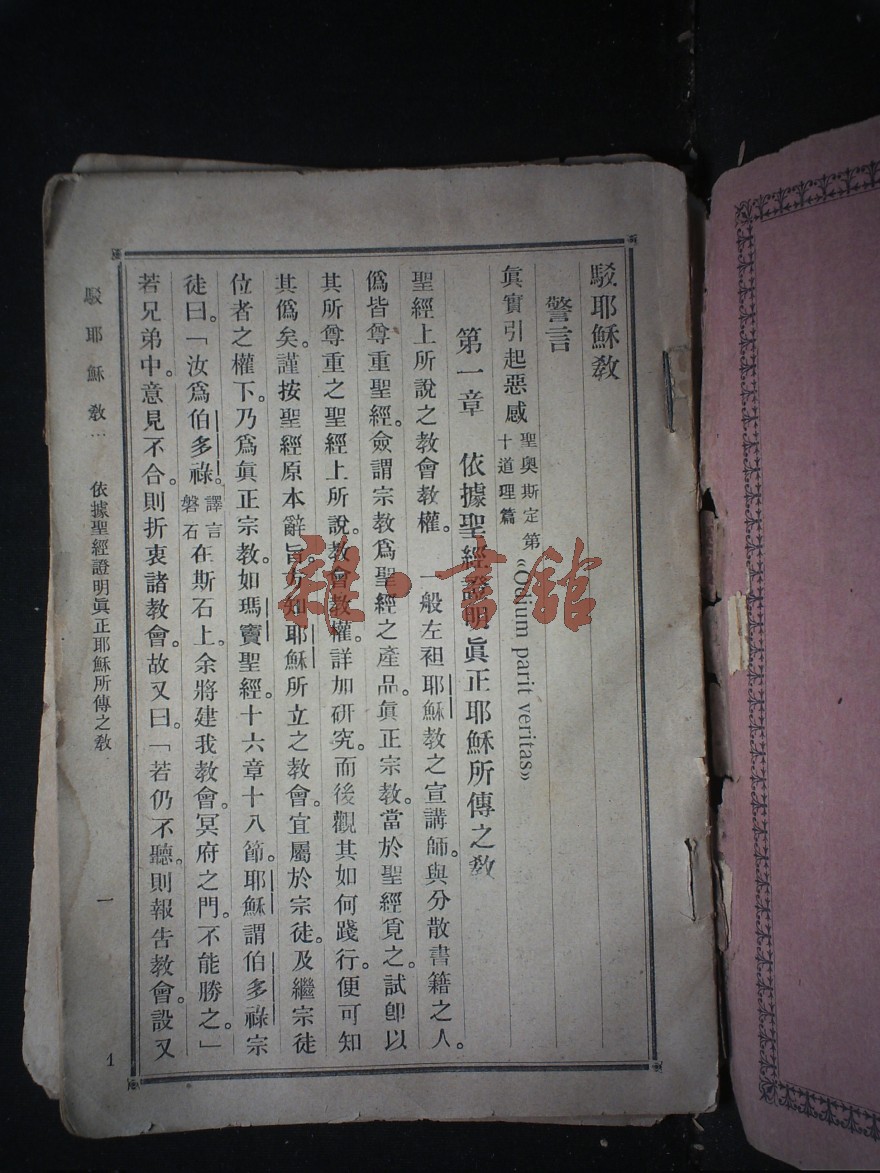 駁耶穌教
警言
眞實引起惡感 聖奧斯定第十道理篇 «Odium parit veritas»
第一章 依據聖經證明眞正耶穌所傳之教
聖經上所說之教會教權。一般左袒耶穌教之宣講師。與分散書籍之人。
僞皆尊重聖經。僉謂宗教爲聖經之產品。眞正宗教。當於聖經覓之。試卽以
其所尊重之聖經上所說。教會教權。詳加研究。而後觀其如何踐行。便可知
其僞矣。謹按聖經原本辭旨。方知耶穌所立之教會。宜屬於宗徒。及繼宗徒
位者之權下。乃爲眞正宗教。如瑪竇聖經。十六章十八節。耶穌謂伯多祿宗
徒曰。「汝爲伯多祿。譯言磐石在斯石上。余將建我教會。冥府之門。不能勝之。」
若兄弟中。意見不合。則折衷諸教會。故又曰。「若仍不聽。則報告教會。設又
駁耶穌教 依據聖經證明眞正耶穌所傳之教 一
1
雜·書館